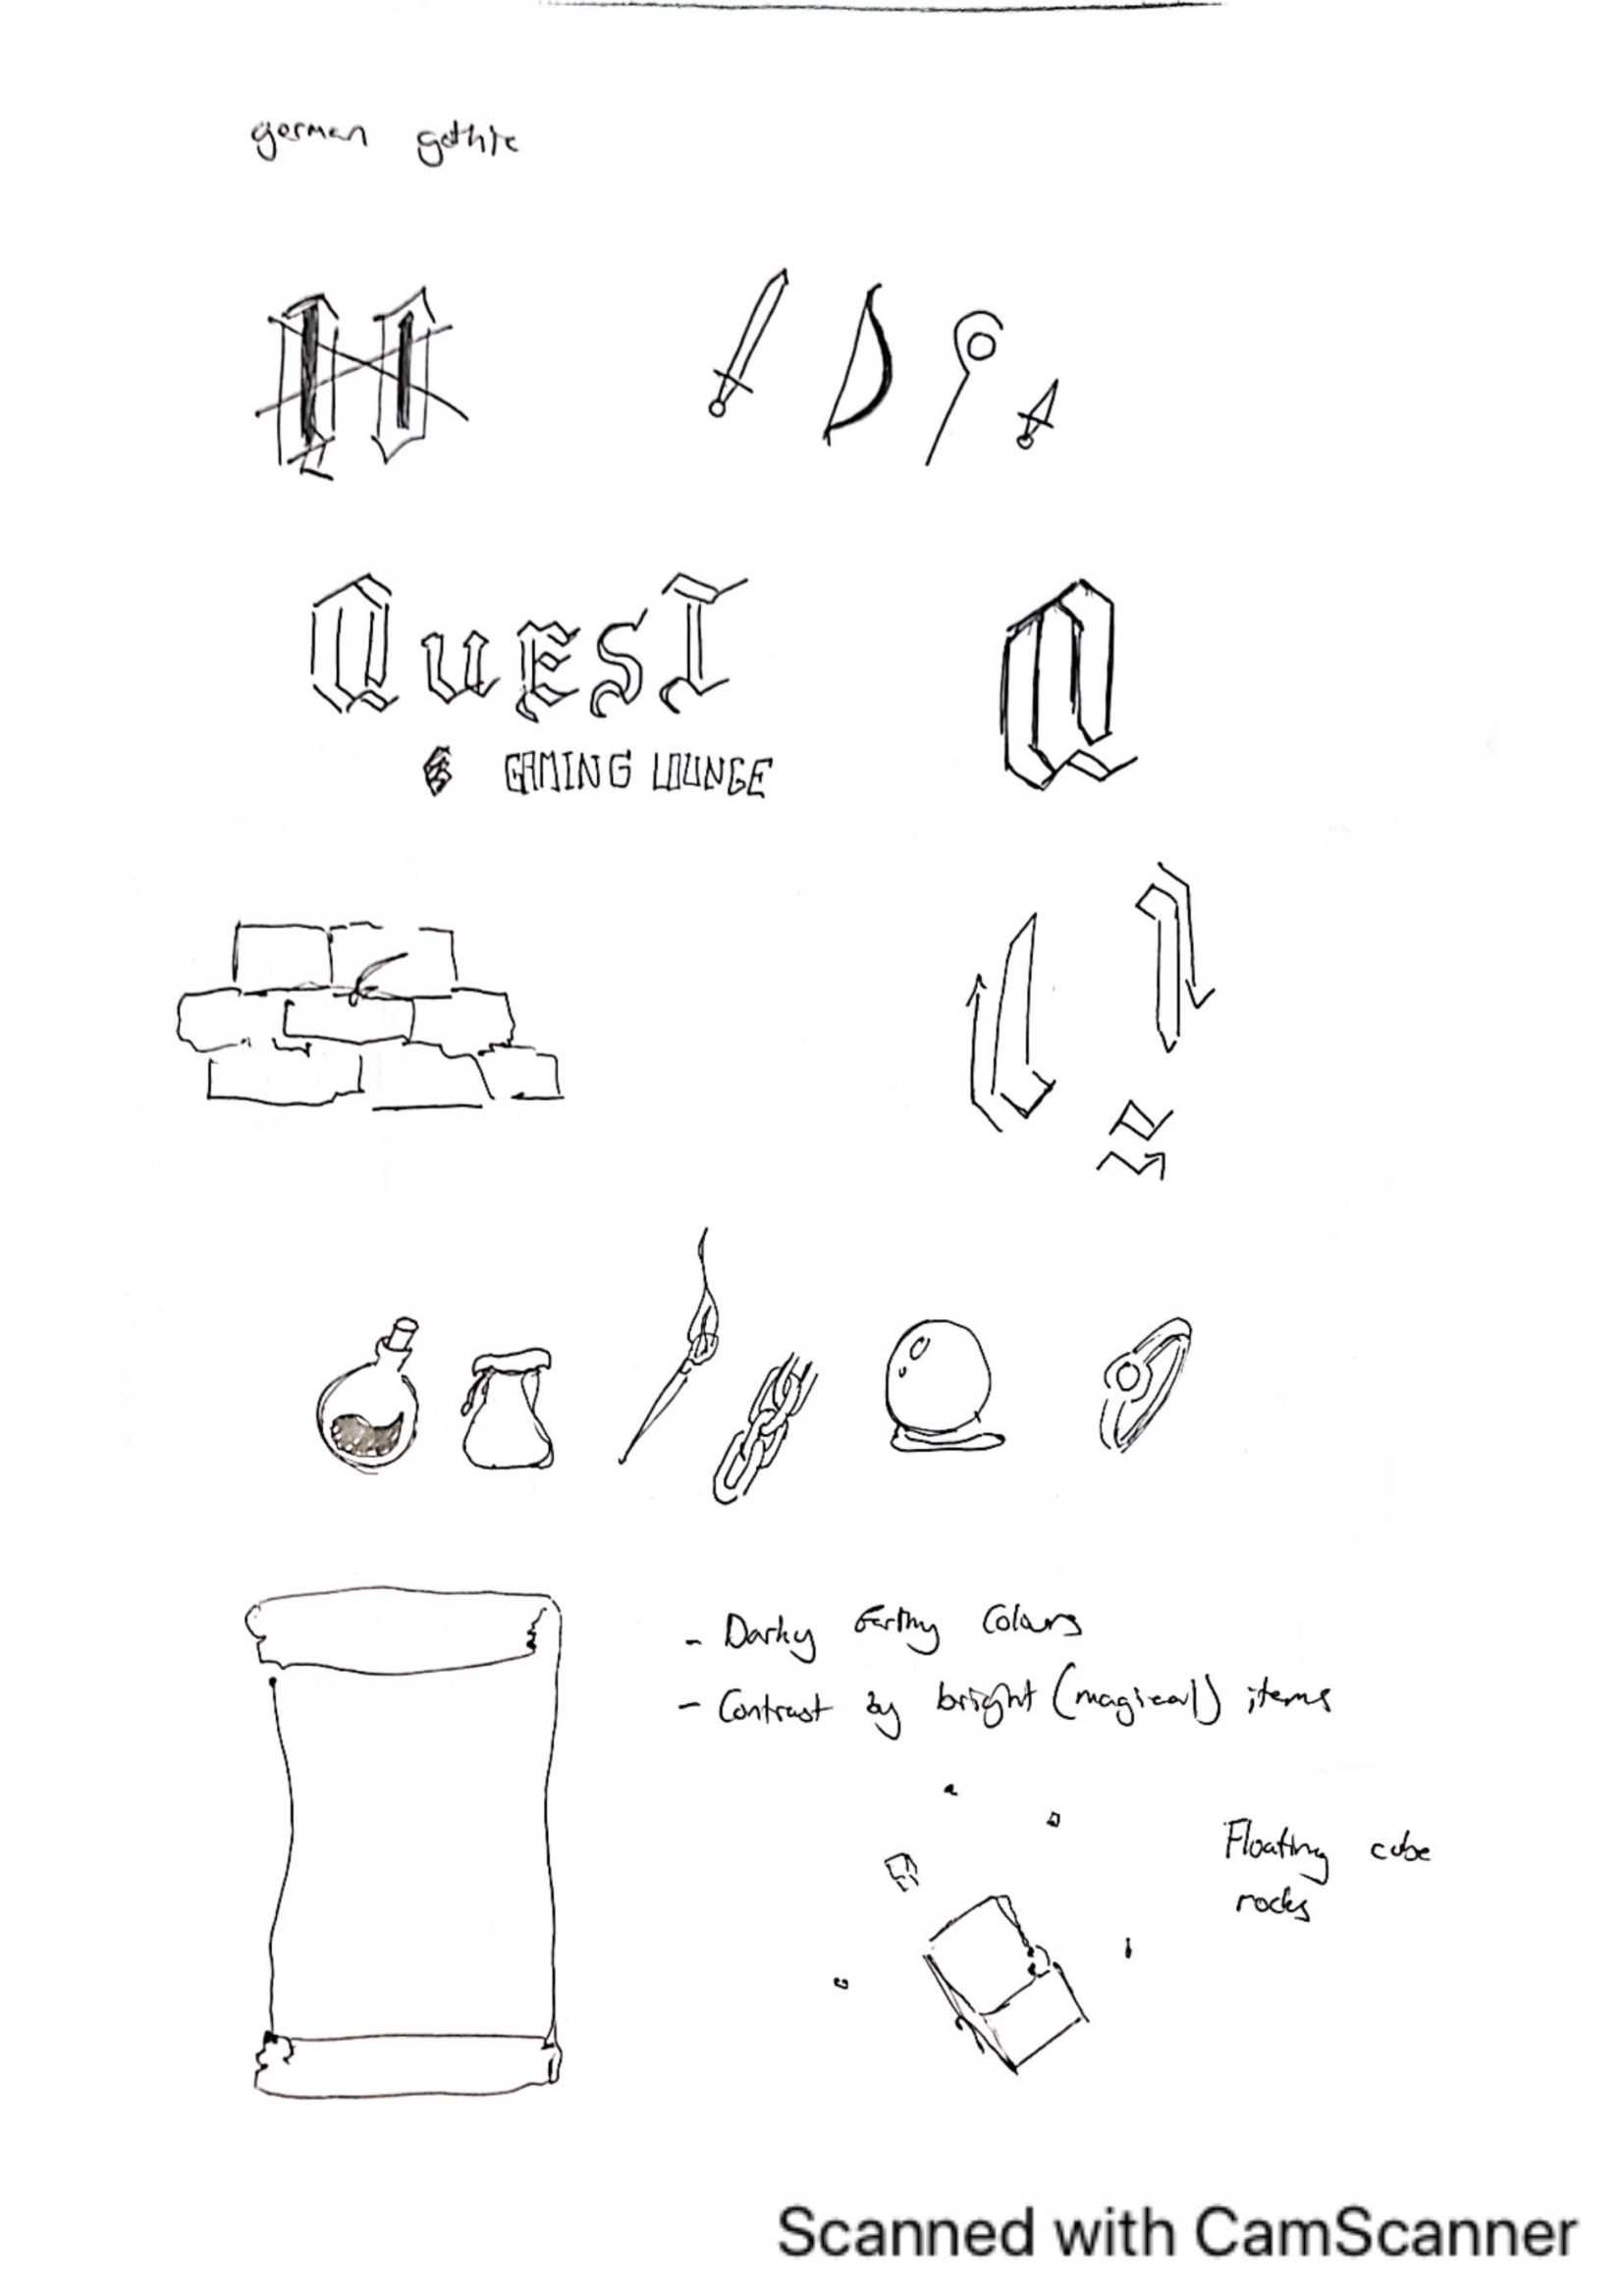 german gothic
QuesT
GAMING LOUNGE
Q
- Darky Earthy Colours
- Contrast by bright (magical) items
Floating cube
rocks
Scanned with CamScanner